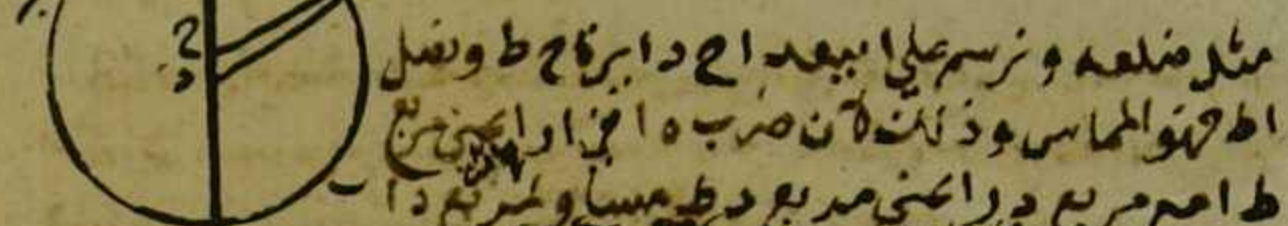 مثل ضلعه و نرسم على ا ببعد ا ح دايرة ح ط ونصل
ا ط فهو المماس وذلك لان ضرب ه ا في ا ر اعنى مربع
ط ا مع مربع د ر اعنى مربع د ط مساو لمربع د ا
ح
د